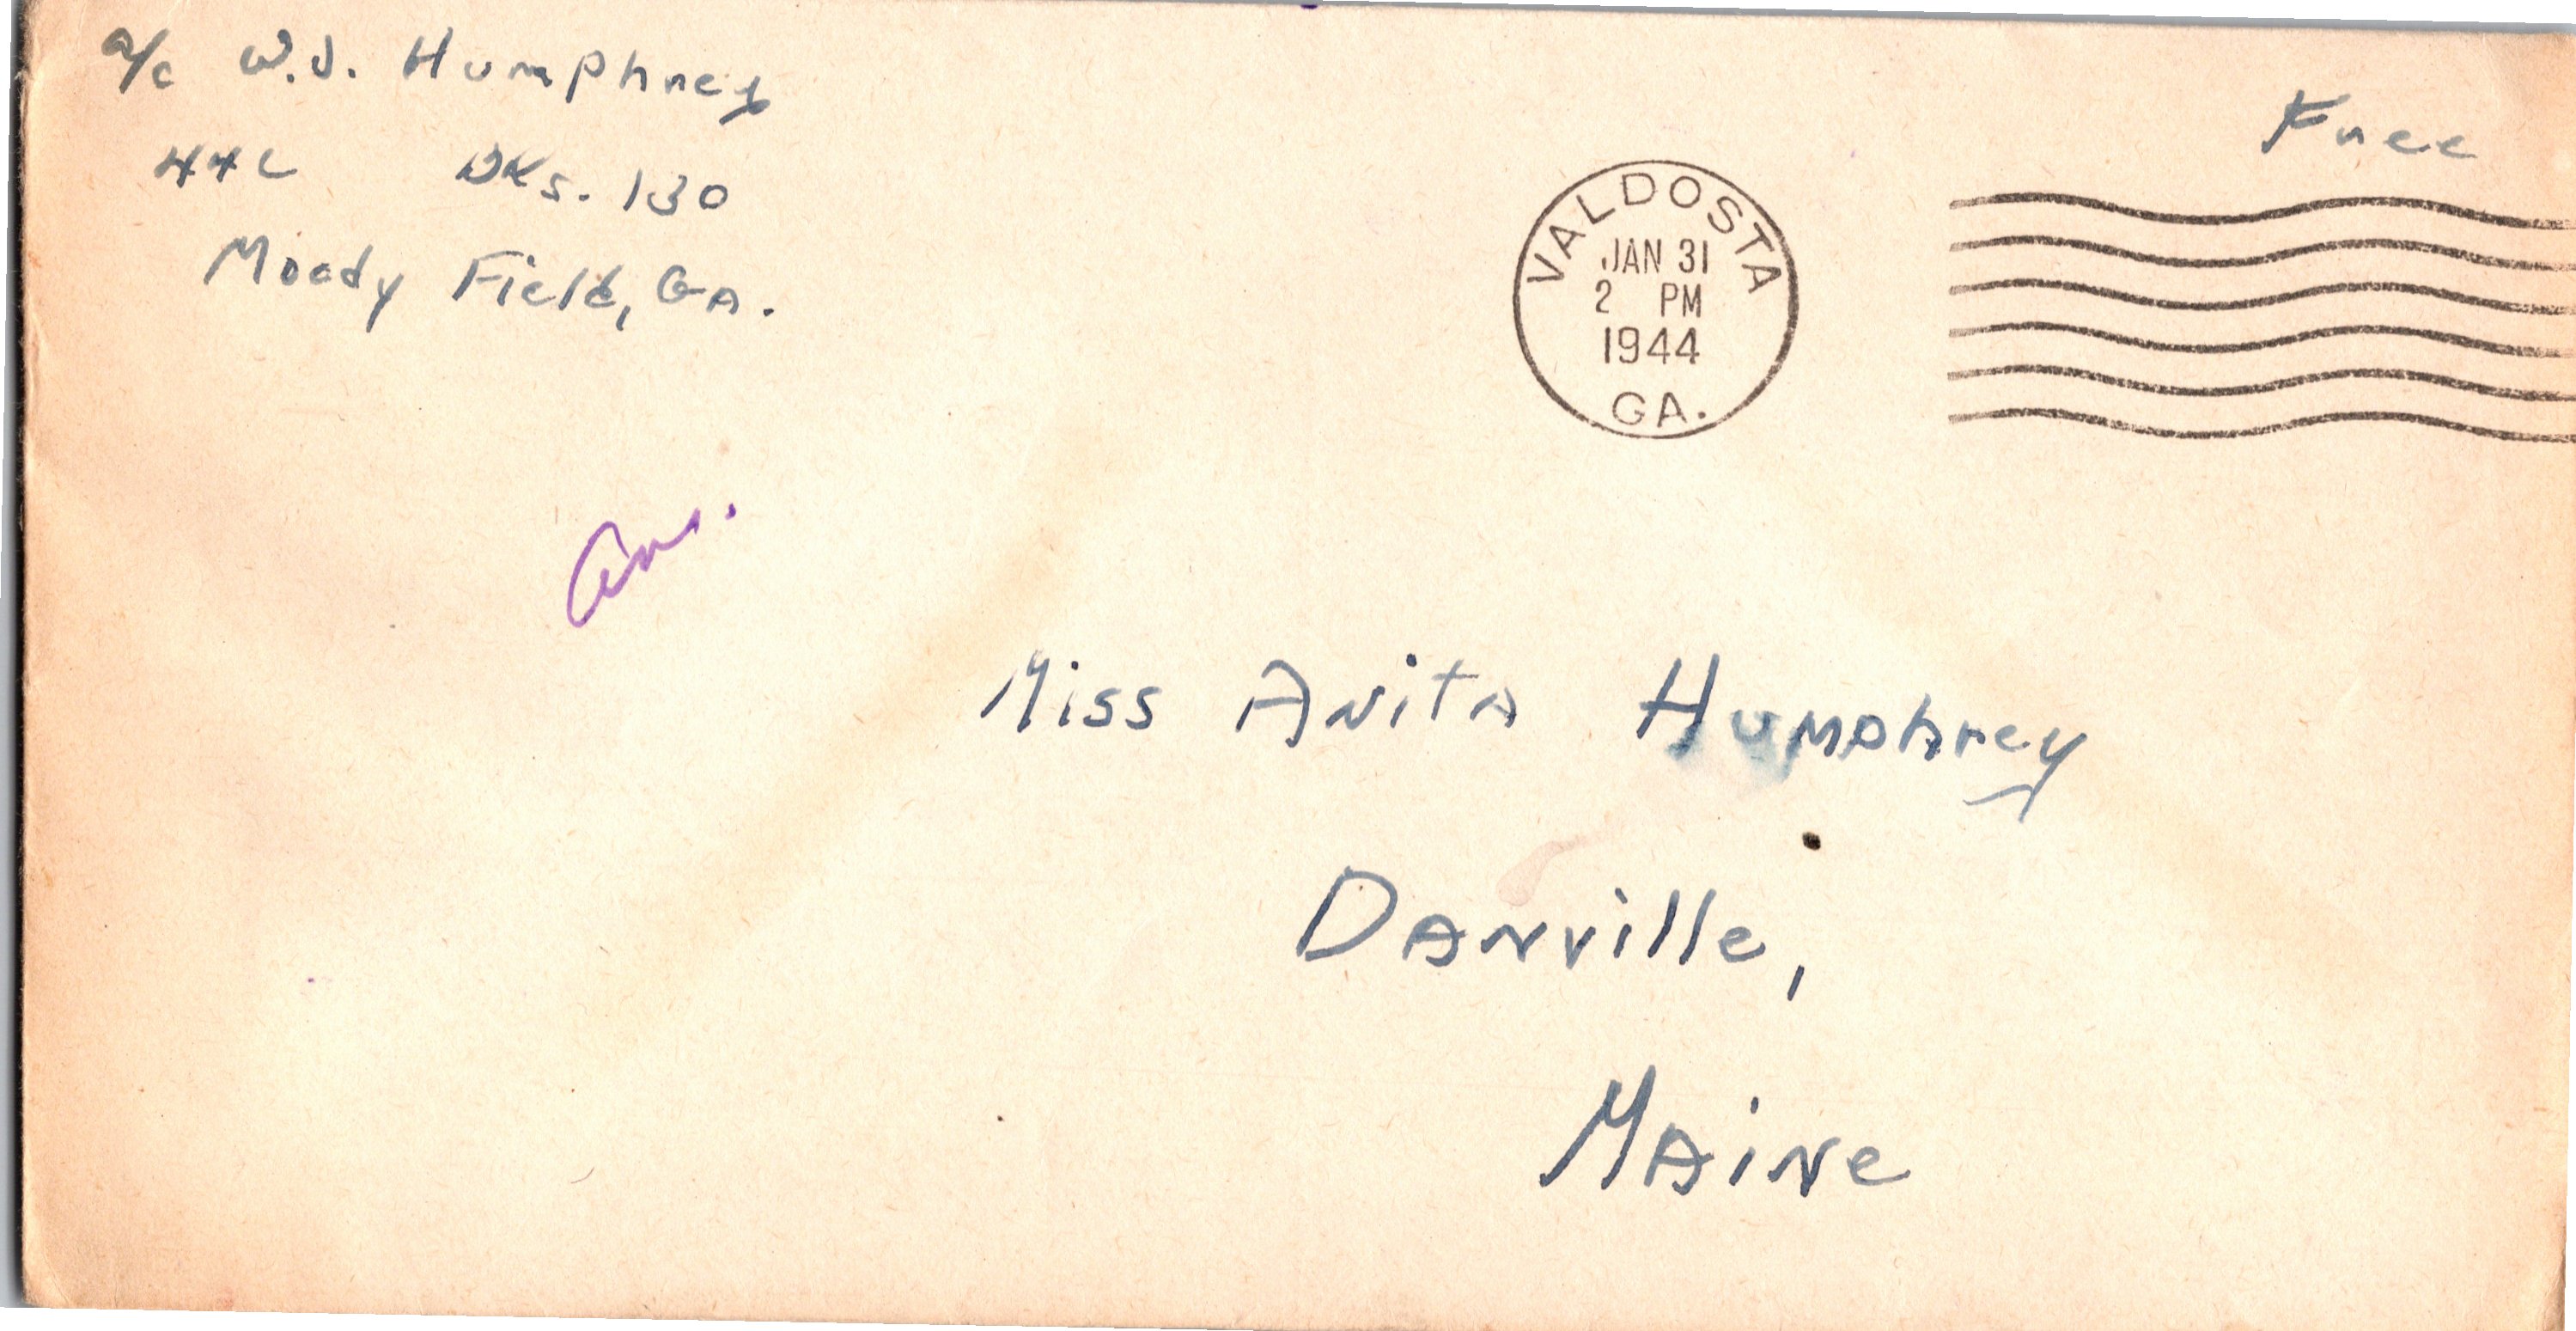 A/C W.J. Humphrey
44C Bks. 130
Moody Field, GA.
Free
VALDOSTA
JAN 31
2 PM
1944
GA.
Ans.
Miss Anita Humphrey
Danville,
Maine